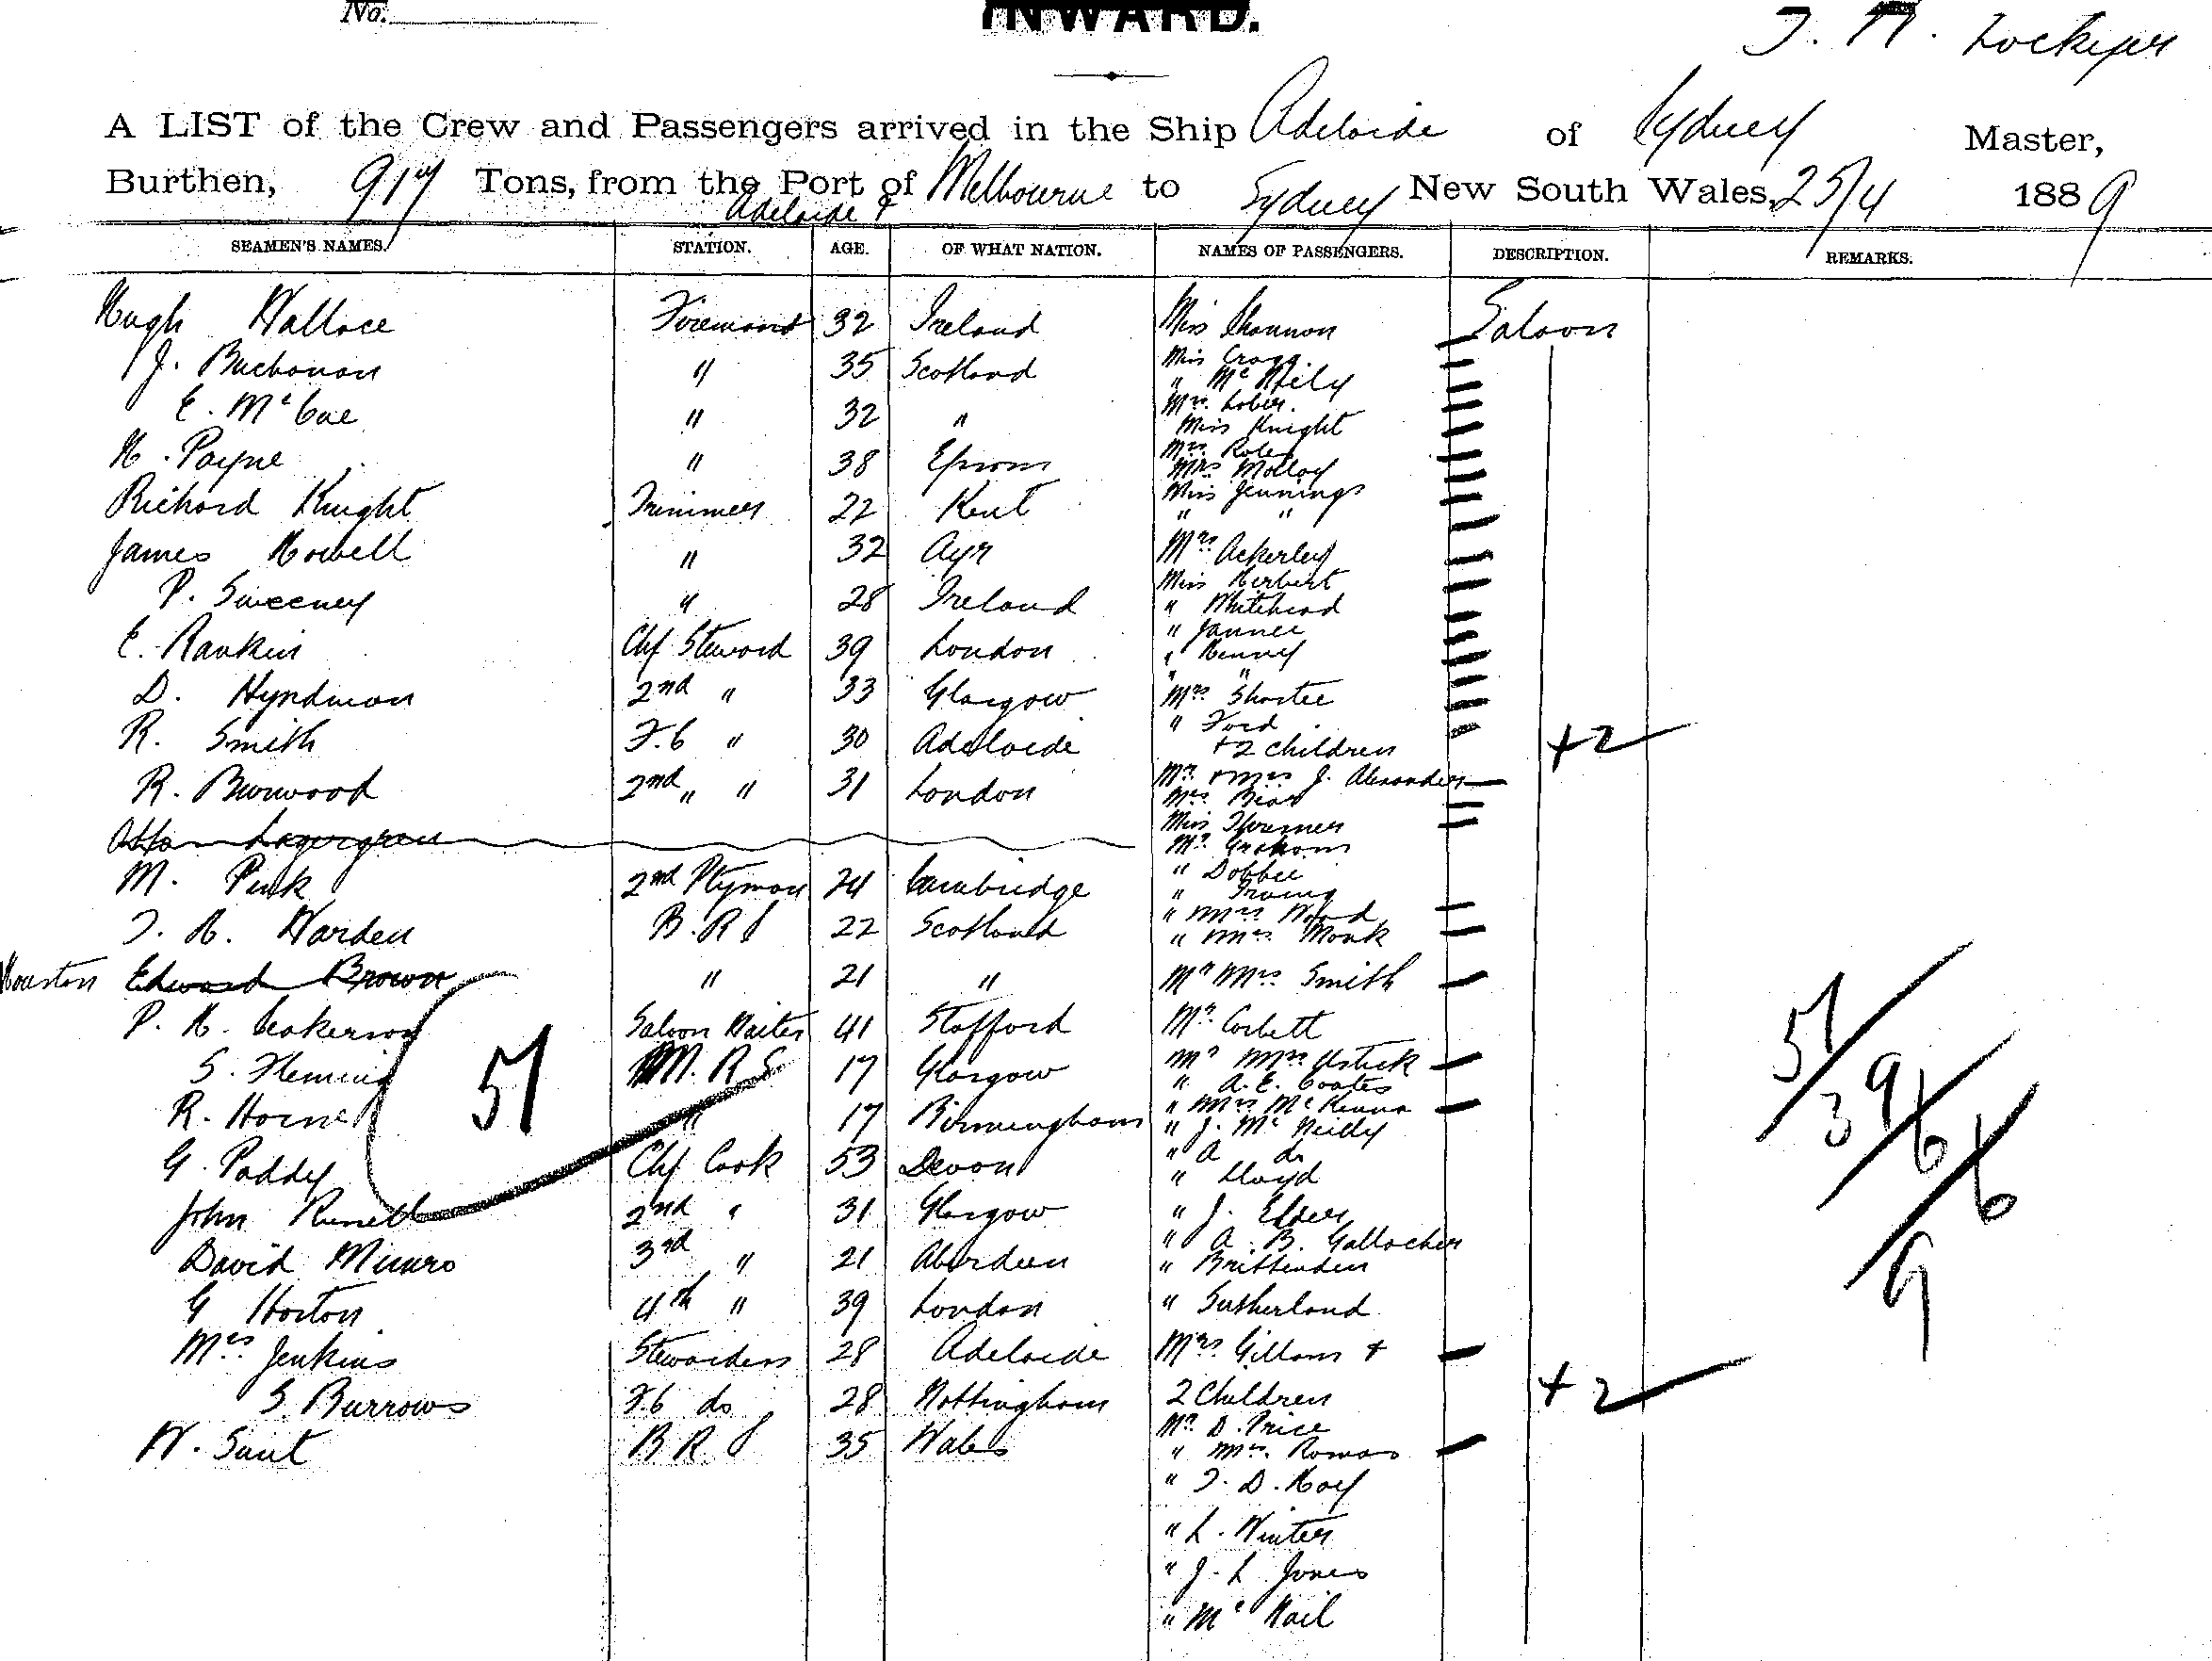 No.
INWARD.
Lockyer
A LIST of the Crew and Passengers arrived in the Ship Adelaide of Sydney Master,
Burthen, 917 Tons, from the Port of Adelaide & Melbourne to Sydney New South Wales, 25/4 1889
SEAMEN'S NAMES. STATION. AGE. OF WHAT NATION. NAMES OF PASSENGERS. DESCRIPTION. REMARKS.
Hugh Wallace Firemans 32 Ireland Miss Shannon Saloon
J. Buchanan " 35 Scotland Miss Cragg
" McNeily
E. McCue " 32 " Mrs. Lober.
Miss Knight
H. Payne " 38 Epsom Mrs. Roley
Mrs Molloy
Richard Knight Trimmer 22 Kent Miss Jennings
" "
James Howell " 32 Ayr Mrs. Ackerley
P. Sweeney " 28 Ireland Miss Herbert
" Whitehead
E. Rankin Chf Steward 39 London " Jannee
" Kenny
" "
D. Hyndman 2nd " 33 Glasgow Mrs. Shortee
R. Smith F.C " 30 Adelaide " Ford
+ 2 children +2
R. Burwood 2nd " " 31 London Mr & Mrs J. Alexander
Mrs. Bear
Otto Lagergren Miss
Mr. Graham
M. Pink 2nd Ptyman 24 Cambridge " Dobbie
" Irving
T. H. Warden B.R.S 22 Scotland " Mrs Wood
" Mrs. Monk
Houston Edward Brown " 21 " Mr Mrs Smith
P. H. Saloon Waiter 41 Stafford Mr. Corbett
S. Fleming M.R.S 17 Glasgow Mr Mrs Ustick
" A. E. Coates
R. Horne " 17 Birmingham " Mrs McKenna
" J. McNeilly
G. Paddy Chf Cook 53 Devon " A do
" Lloyd
John Russell 2nd " 31 Glasgow " J. Elder
" A. B. Gallocher
David Munro 3rd " 21 Aberdeen " Brittenden
G Horton 4th " 39 London " Sutherland
Mrs. Jenkins Stewardess 28 Adelaide Mrs. Gillans +
S. Burrows F.C do 28 Nottingham 2 Children +2
Mr. D. Price
W. Saut B R S 35 Wales " Mrs. Roman
" T. D. Hoy
" L. Winter
" J. L. Jones
" McNail
57
57/
39/6
/6
9